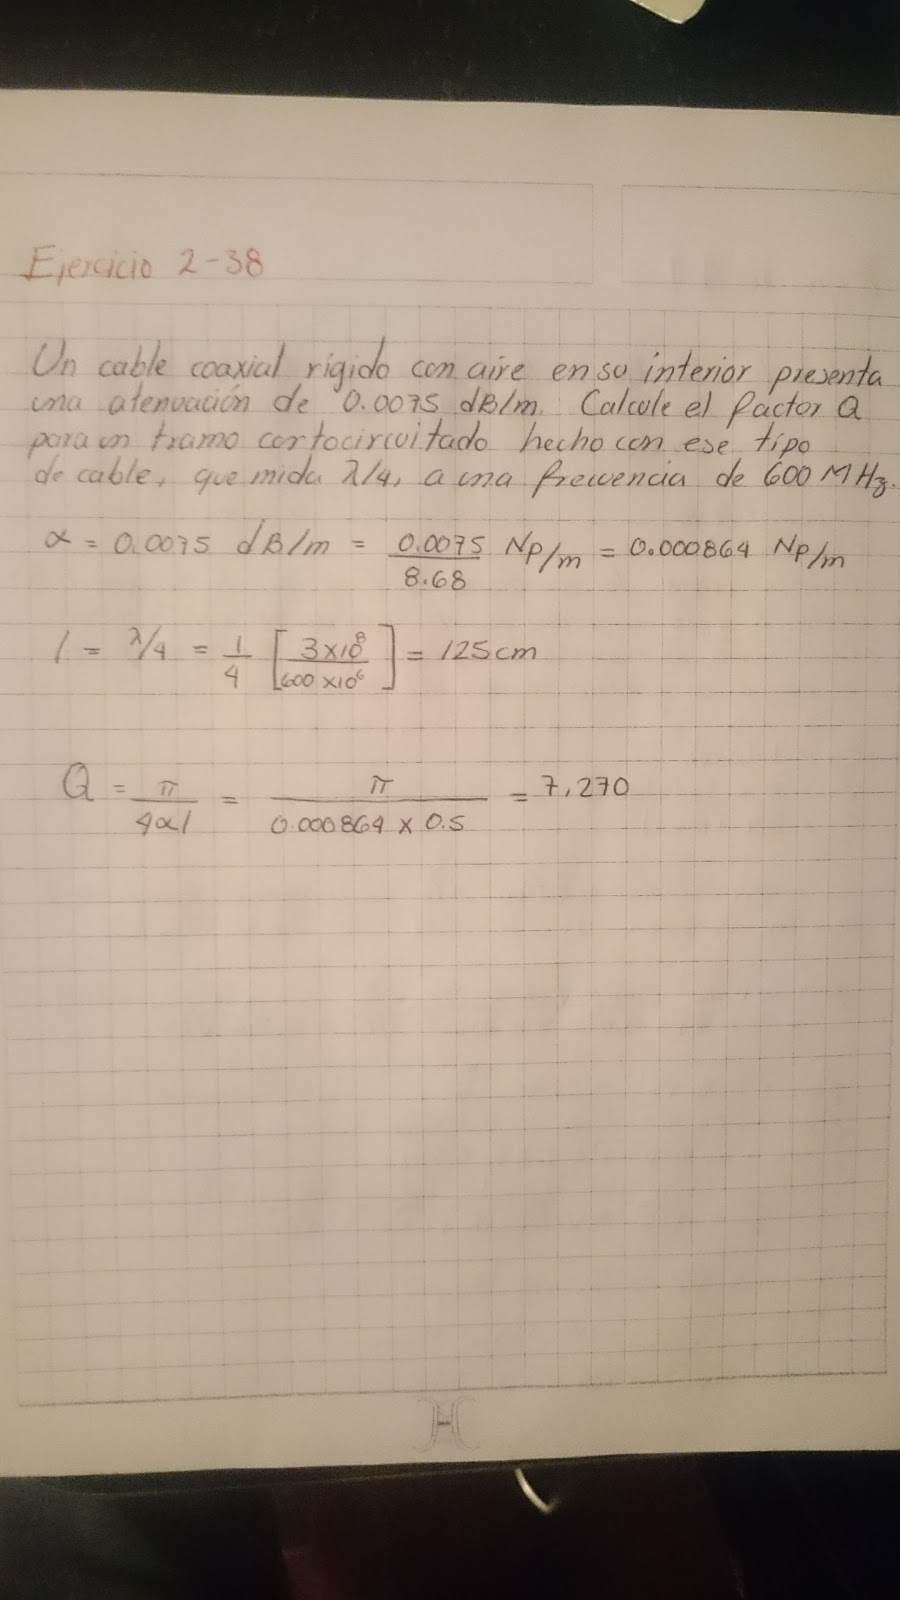 Ejercicio 2-38
Un cable coaxial rígido con aire en su interior presenta
una atenuación de 0.0075 dB/m. Calcule el factor Q
para un tramo cortocircuitado hecho con ese tipo
de cable, que mida λ/4, a una frecuencia de 600 MHz.
α = 0.0075 dB/m = 0.0075/8.68 Np/m = 0.000864 Np/m
l = λ/4 = 1/4 [3x10⁸/600x10⁶] = 125cm
Q = π/4αl = π/0.000864 x 0.5 = 7,270